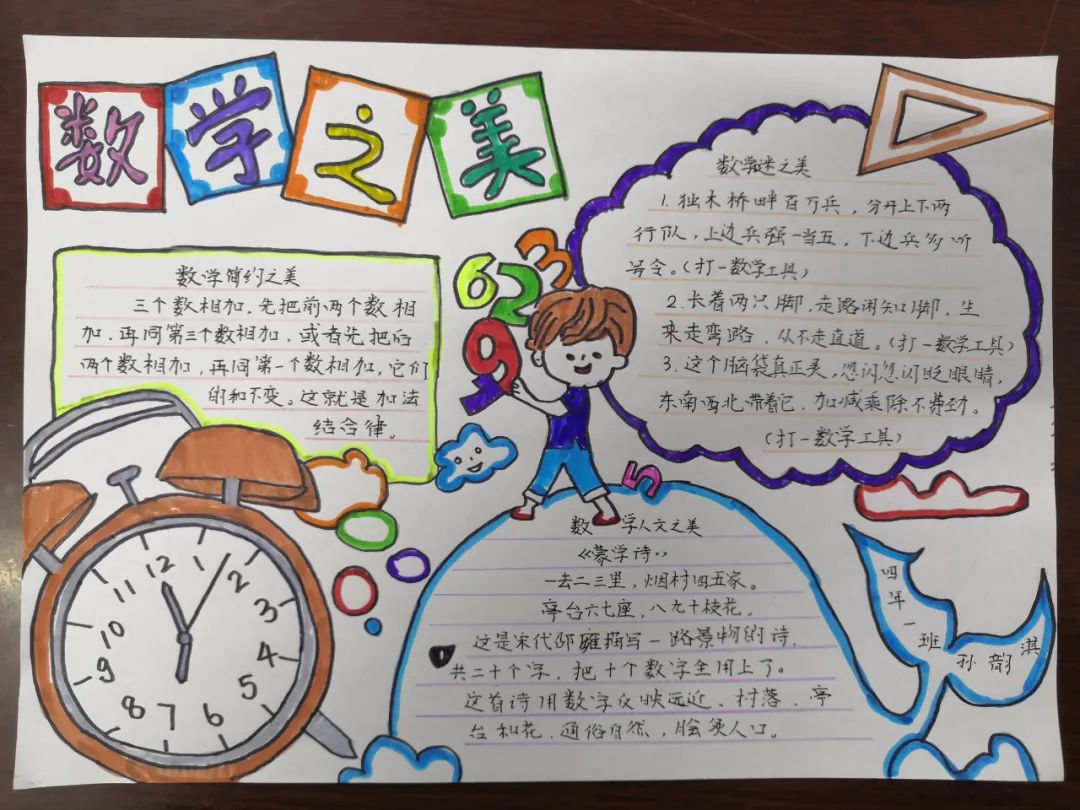 数学之美
数学简约之美
三个数相加，先把前两个数相
加，再同第三个数相加，或者先把后
两个数相加，再同第一个数相加，它们
的和不变。这就是加法
结合律。
6
2
3
9
1
5
数学谜之美
1.独木桥畔百万兵，分开上下两
行队，上边兵强一当五，下边兵多听
号令。(打一数学工具)
2.长着两只脚，走路闭知脚，生
来走弯路，从不走直道。(打一数学工具)
3.这个脑袋真正灵，忽闪忽闪眨眼睛，
东南西北带着它，加减乘除不费劲。
(打一数学工具)
数学人文之美
《蒙学诗》
一去二三里，烟村四五家。
亭台六七座，八九十枝花，
这是宋代邵雍描写一路景物的诗，
共二十个字，把十个数字全用上了。
这首诗用数字反映远近、村落、亭
台和花，通俗自然，脍炙人口。
四年一班
孙韵淇
12
1
2
3
4
5
6
7
8
9
10
11